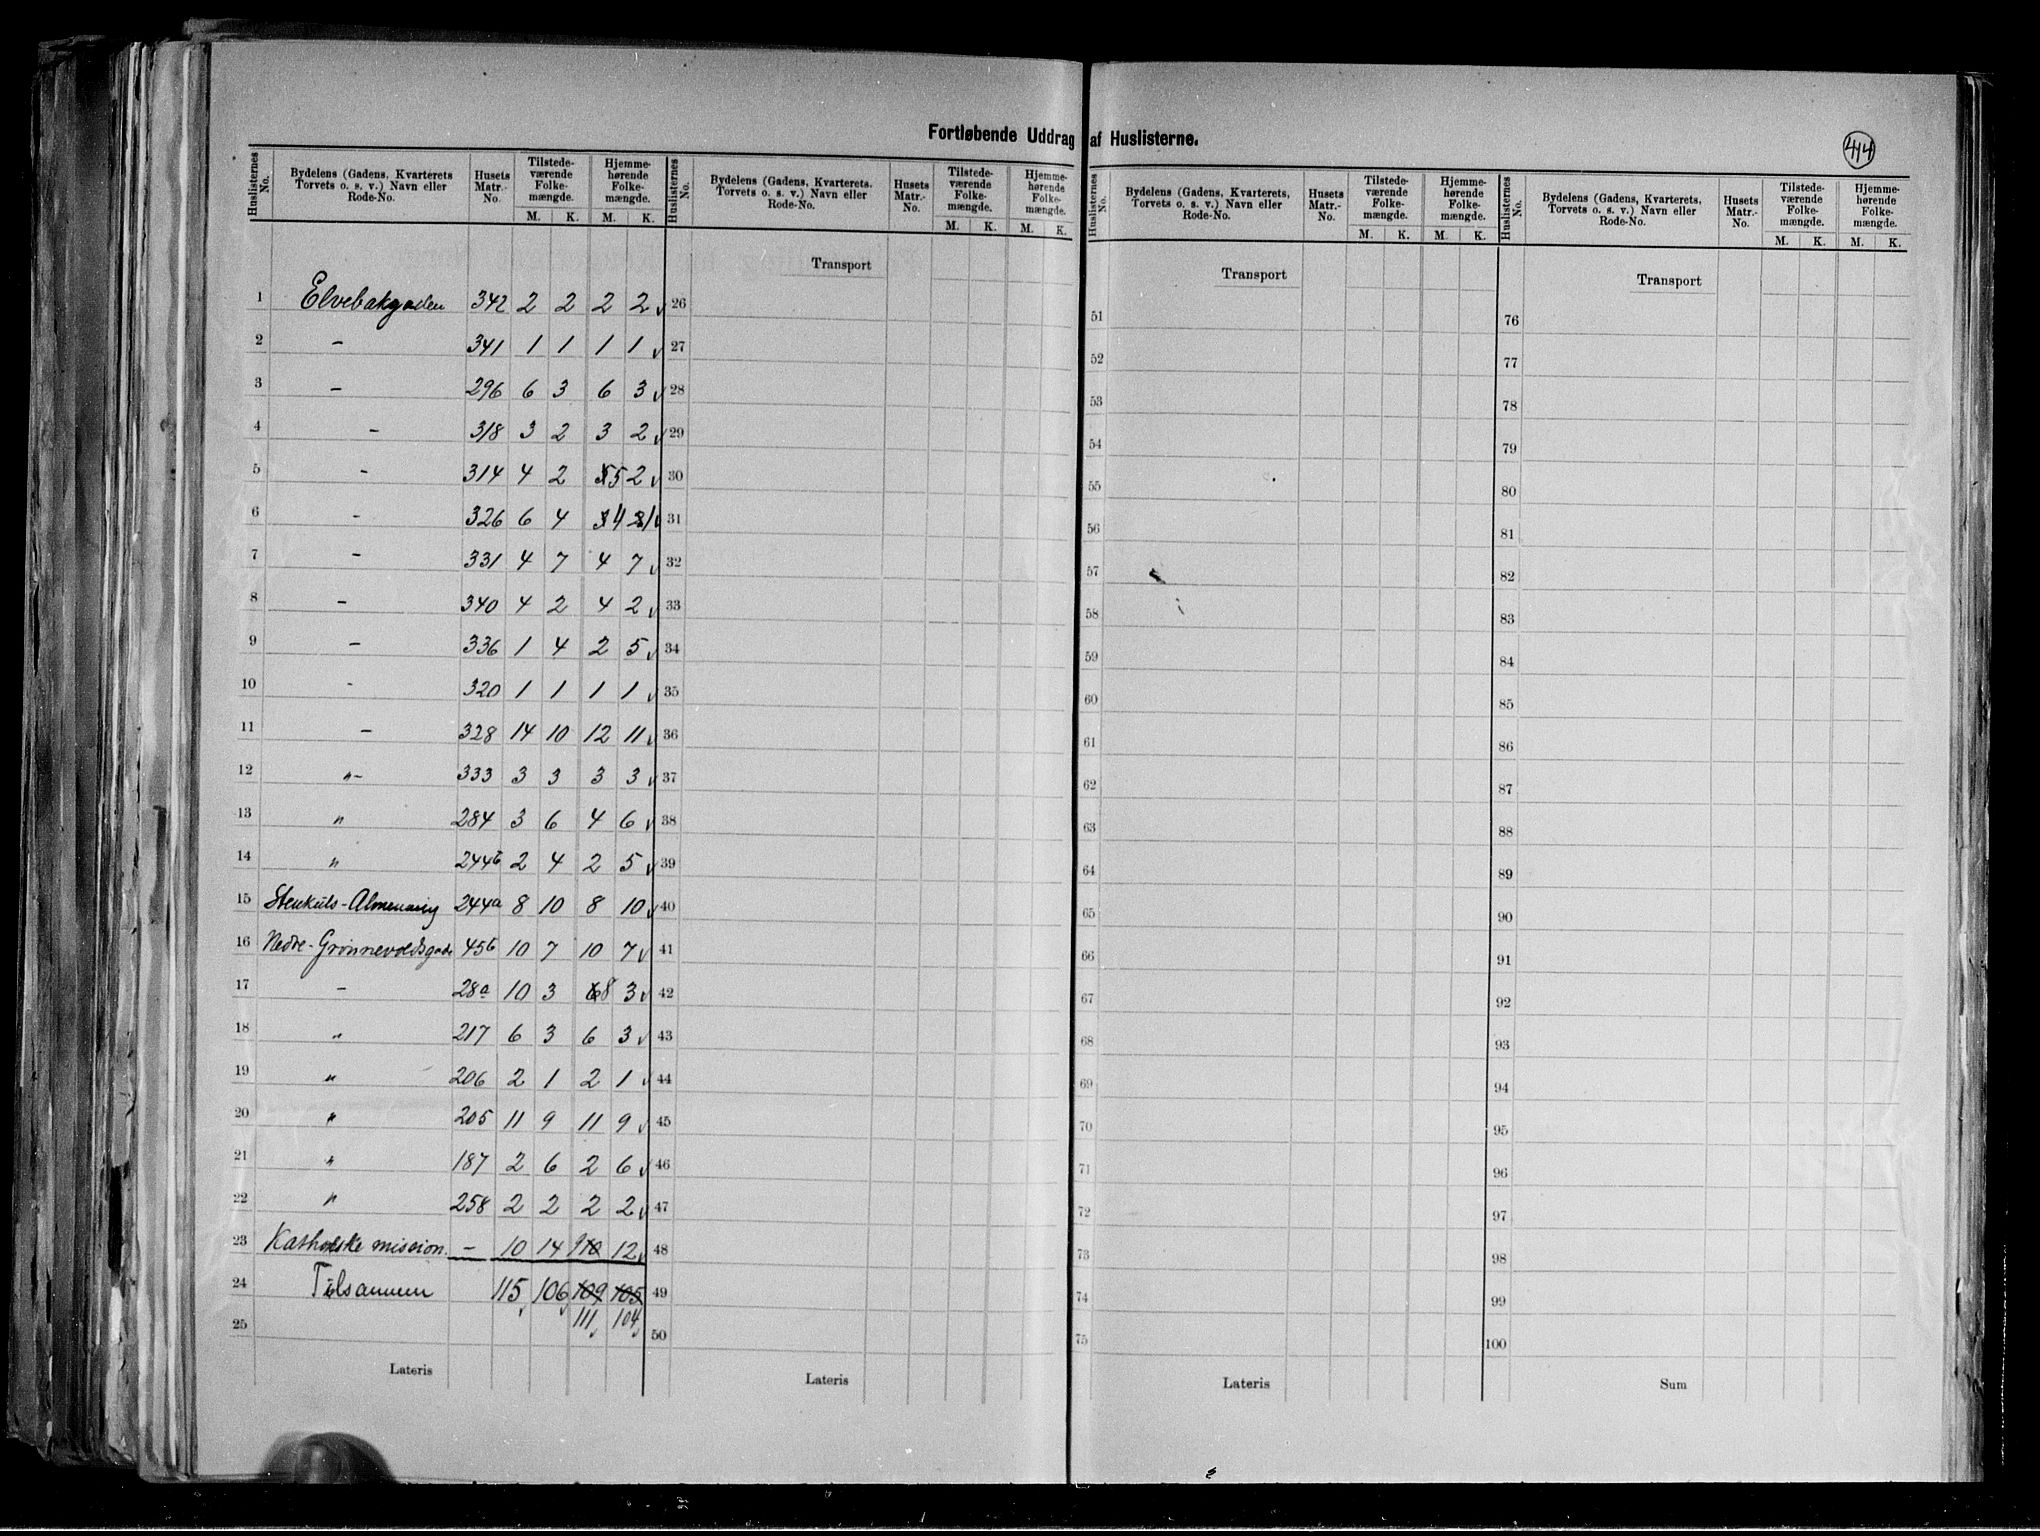 Fortløbende Uddrag af Huslisterne.
414
Huslisternes No. | Bydelens (Gadens, Kvarterets Torvets o. s. v.) Navn eller Rode-No. | Husets Matr.-No. | Tilstede-værende Folke-mængde. M. K. | Hjemme-hørende Folke-mængde. M. K.
Huslisternes No. | Bydelens (Gadens, Kvarterets, Torvets o. s. v.) Navn eller Rode-No. | Husets Matr.-No. | Tilstede-værende Folke-mængde. M. K. | Hjemme-hørende Folke-mængde. M. K.
Huslisternes No. | Bydelens (Gadens, Kvarterets, Torvets o. s. v.) Navn eller Rode-No. | Husets Matr.-No. | Tilstede-værende Folke-mængde. M. K. | Hjemme-hørende Folke-mængde. M. K.
Huslisternes No. | Bydelens (Gadens, Kvarterets, Torvets o. s. v.) Navn eller Rode-No. | Husets Matr.-No. | Tilstede-værende Folke-mængde. M. K. | Hjemme-hørende Folke-mængde. M. K.
1 Elvebakgaden 342 2 2 2 2
2 - 341 1 1 1 1
3 - 296 6 3 6 3
4 - 318 3 2 3 2
5 - 314 4 2 5 2
6 - 326 6 4 4 1
7 - 331 4 7 4 7
8 - 340 4 2 4 2
9 - 336 1 4 2 5
10 - 320 1 1 1 1
11 - 328 14 10 12 11
12 "- 333 3 3 3 3
13 " 284 3 6 4 6
14 " 244b 2 4 2 5
15 -Almenning 244a 8 10 8 10
16 Nedre-Grønnevoldsgade 45b 10 7 10 7
17 - 28a 10 3 8 3
18 " 217 6 3 6 3
19 " 206 2 1 2 1
20 " 205 11 9 11 9
21 " 187 2 6 2 6
22 " 258 2 2 2 2
23 Katholske mission. - 10 14 9 10 12
24 Tilsammen 115 106 109 105
25 111 104
Lateris
Transport
26
27
28
29
30
31
32
33
34
35
36
37
38
39
40
41
42
43
44
45
46
47
48
49
50
Lateris
Transport
51
52
53
54
55
56
57
58
59
60
61
62
63
64
65
66
67
68
69
70
71
72
73
74
75
Lateris
Transport
76
77
78
79
80
81
82
83
84
85
86
87
88
89
90
91
92
93
94
95
96
97
98
99
100
Sum